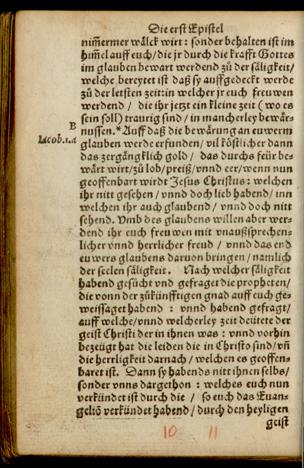 Die erst Epistel
nim̃ermer wälck wirt: sonder behalten ist im
him̃el auff euch/die jr durch die krafft Gottes
im glauben bewart werdend zů der säligkeit/
welche bereytet ist daß sy auffgedeckt werde
zů der letsten zeit:in welcher jr euch freuwen
werdend / die ihr jetzt ein kleine zeit (wo es
sein soll) traurig sind/ in mancherley bewär-
nussen.*Auff daß die bewärung an euwerm
B
Jacob.1.a
glauben werde erfunden/vil köstlicher dann
das zergängklich gold / das durchs feür be-
wärt wirt/zů lob/preiß/vnnd eer/wenn nun
geoffenbart wirdt Jesus Christus: welchen
ihr nitt gesehen / vnnd doch lieb habend/inn
welchen ihr auch glaubend/ vnnd doch nitt
sehend. Vmb des glaubens willen aber wer-
dend ihr euch freuwen mit vnaußsprechen-
licher vnnd herrlicher freud / vnnd das end
euwers glaubens daruon bringen/ namlich
der seelen säligkeit. Nach welcher säligkeit
habend gesůcht vnd gefraget die propheten/
die vonn der zůkünfftigen gnad auff euch ge-
weissaget habend : vnnd habend gefragt/
auff welche/vnnd welcherley zeit deütete der
geist Christi der in ihnen was : vnnd vorhin
bezeügt hat die leiden die in Christo sind/vñ
die herrligkeit darnach / welchen es geoffen-
baret ist. Dann sy habends nitt ihnen selbs/
sonder vnns dargethon : welches euch nun
verkündet ist durch die / so euch das Euan-
geliõ verkündet habend/durch den heyligen
geist
10 11